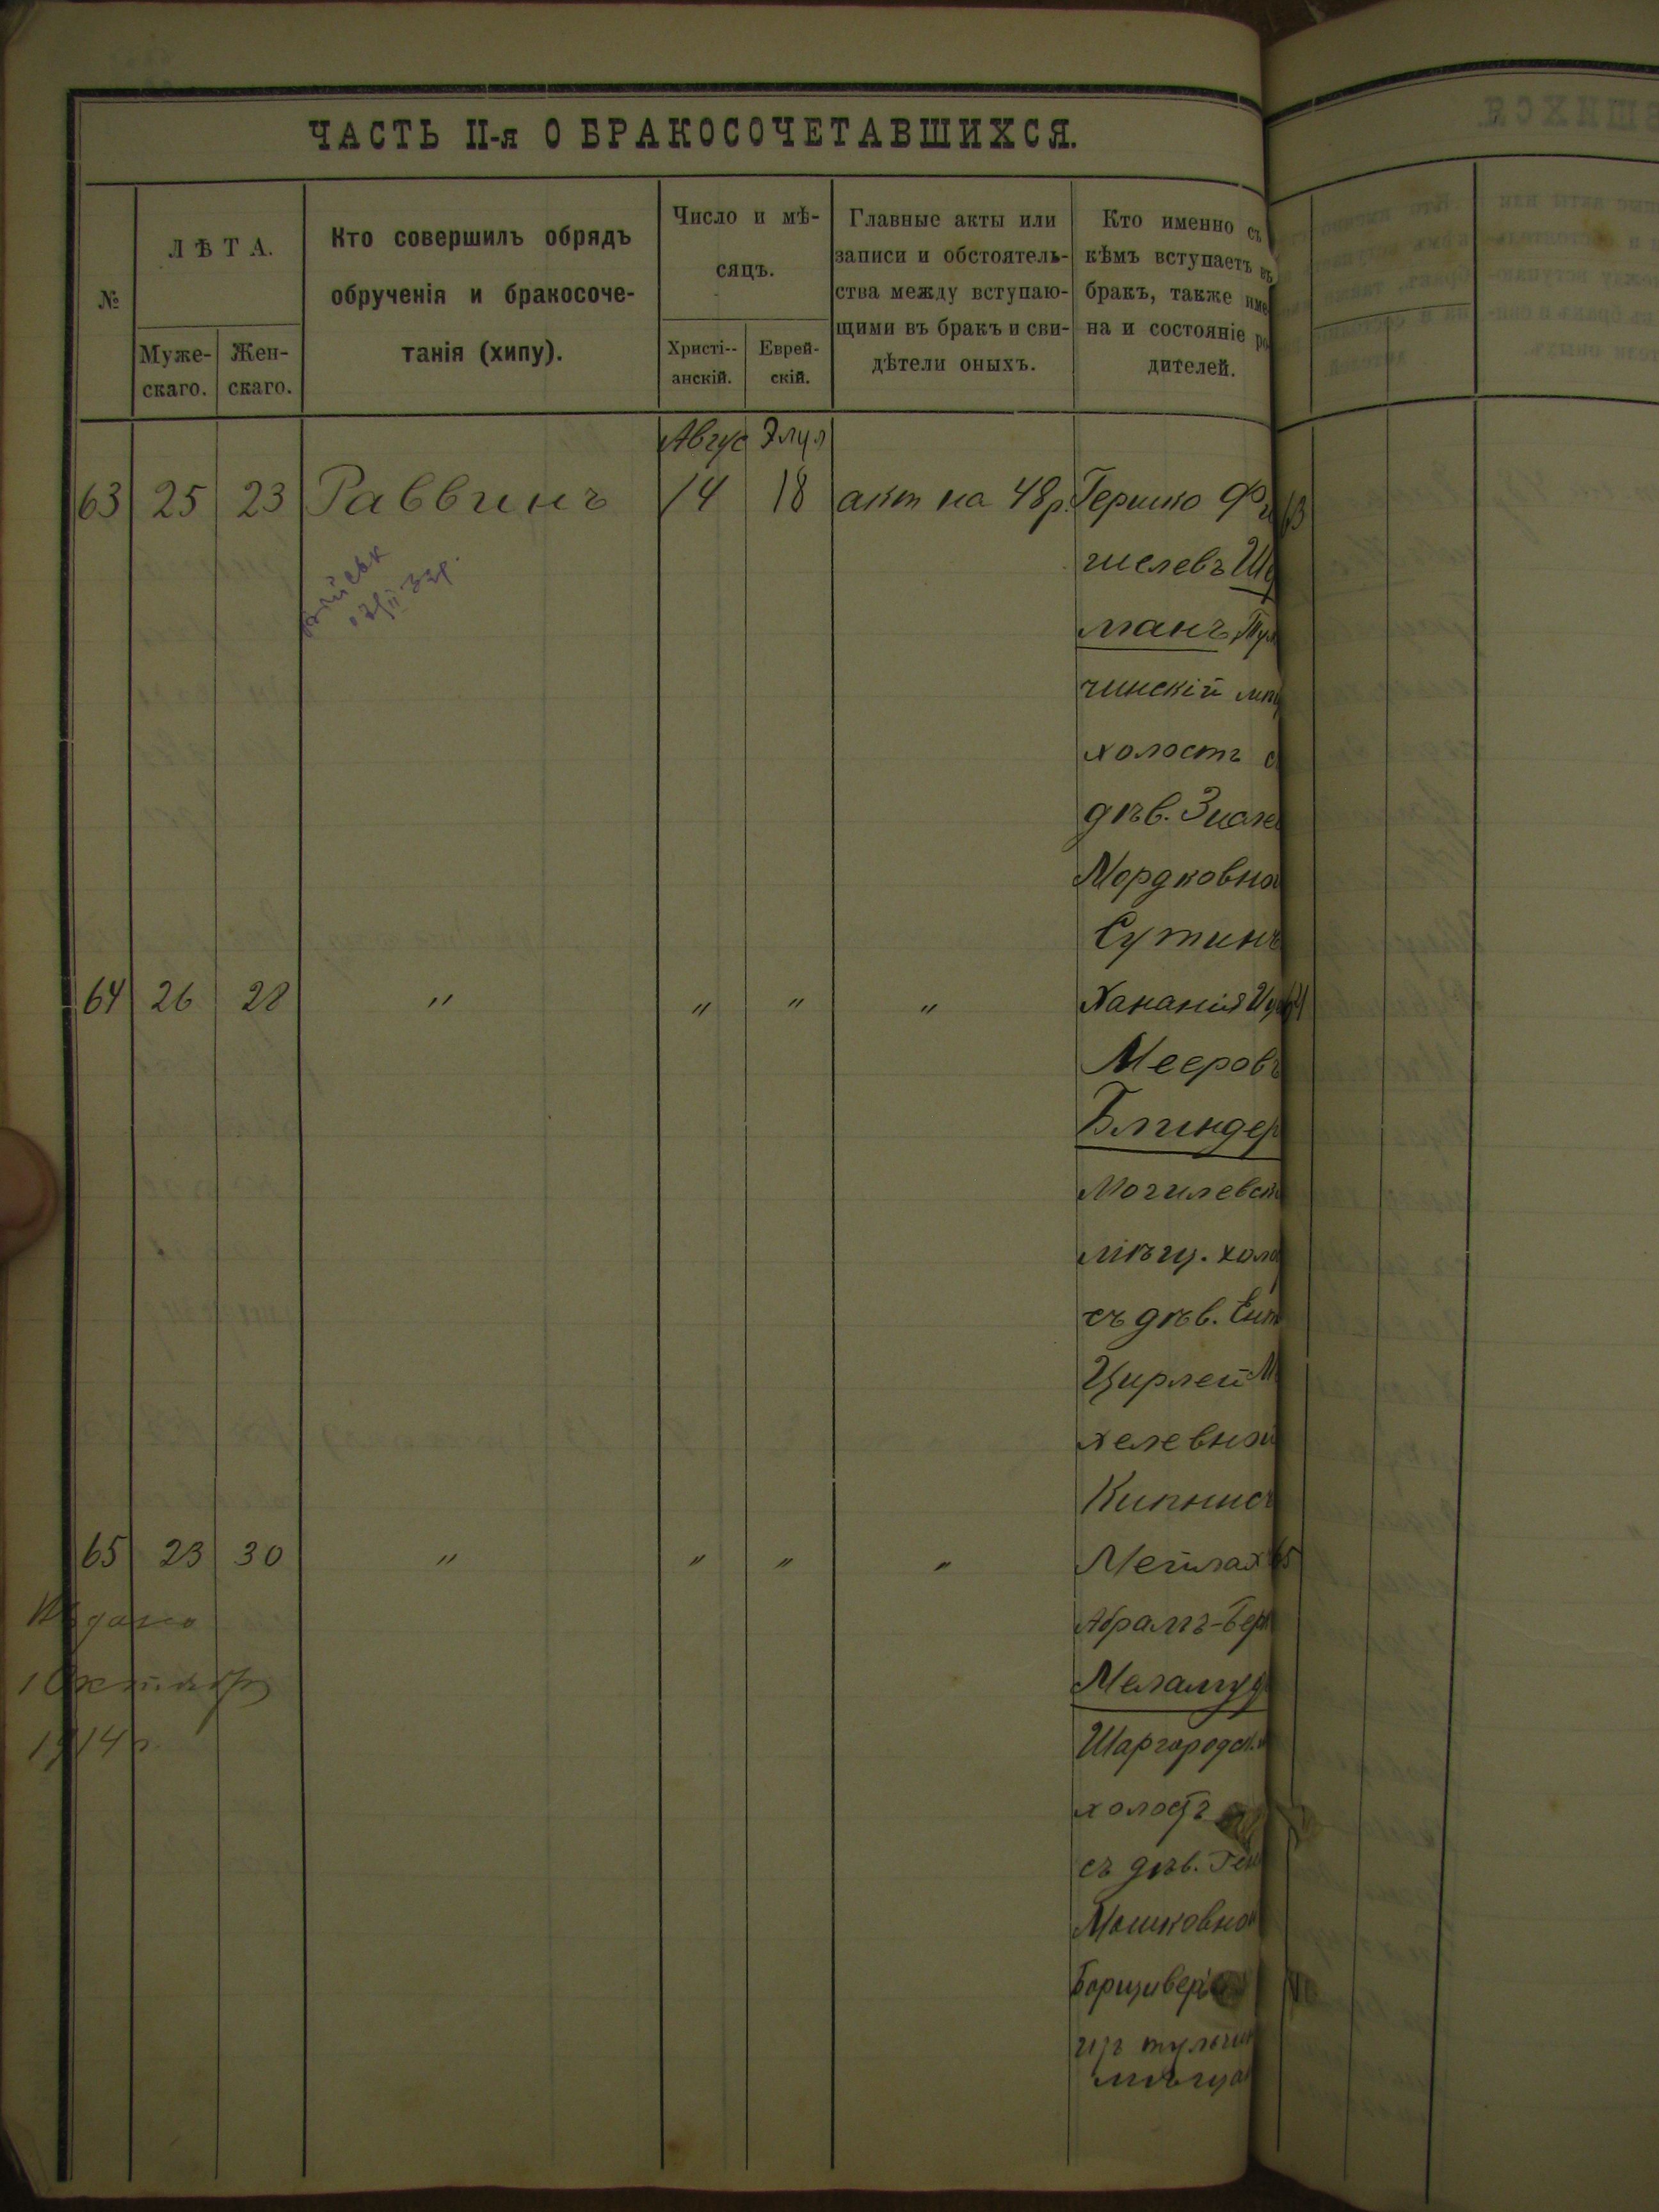 ЧАСТЬ II-я О БРАКОСОЧЕТАВШИХСЯ.
№
ЛѢТА.
Муже-
скаго.
Жен-
скаго.
Кто совершилъ обрядъ
обрученія и бракосоче-
танія (хипу).
Число и мѣ-
сяцъ.
Христі--
анскій.
Еврей-
скій.
Главные акты или
записи и обстоятель-
ства между вступаю-
щими въ бракъ и сви-
дѣтели оныхъ.
Кто именно съ
кѣмъ вступаетъ въ
бракъ, также име
на и состояніе ро
дителей.
Авгус Элул
63 25 23 Раввинъ 14 18 акт на 48р. Гершко
шелевъ
манъ
чинскій
холостъ с
дѣв.
Мордковно
Сутинъ
64 26 28 " " " " Хананія
Мееровъ
Блиндер
Могилевск
мѣщ. холо
съ дѣв. Ент
Цирлей М
хелевной
Кипнисъ
65 23 30 " " " " Мейлах
Абрамъ-Бер
Меламуд
Шаргородск.
холостъ
съ дѣв.
Мошковной
Борщивер
изъ тульчин
мѣщан
Выдано
1 Октября
1914 г.